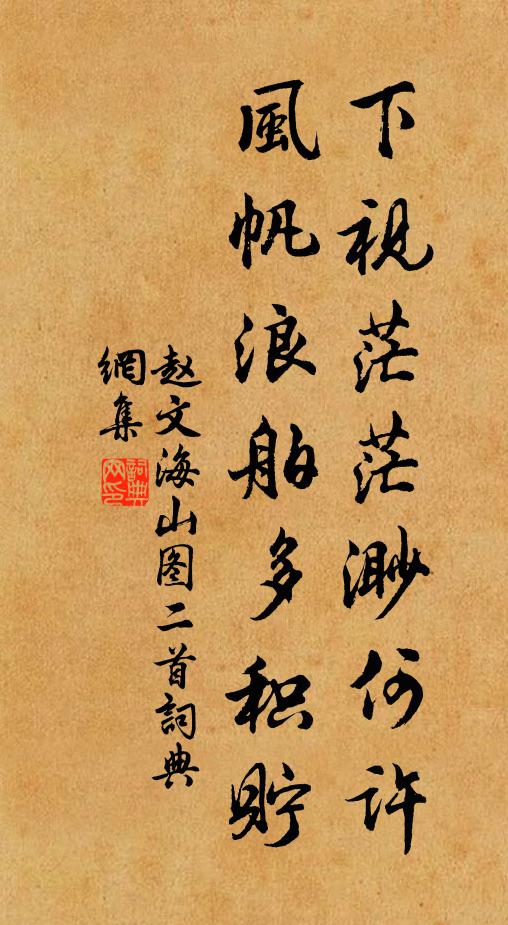 下視茫茫渺何許
風帆浪舶多积貯
赵文海山图二首詞典
網集
詞典网印